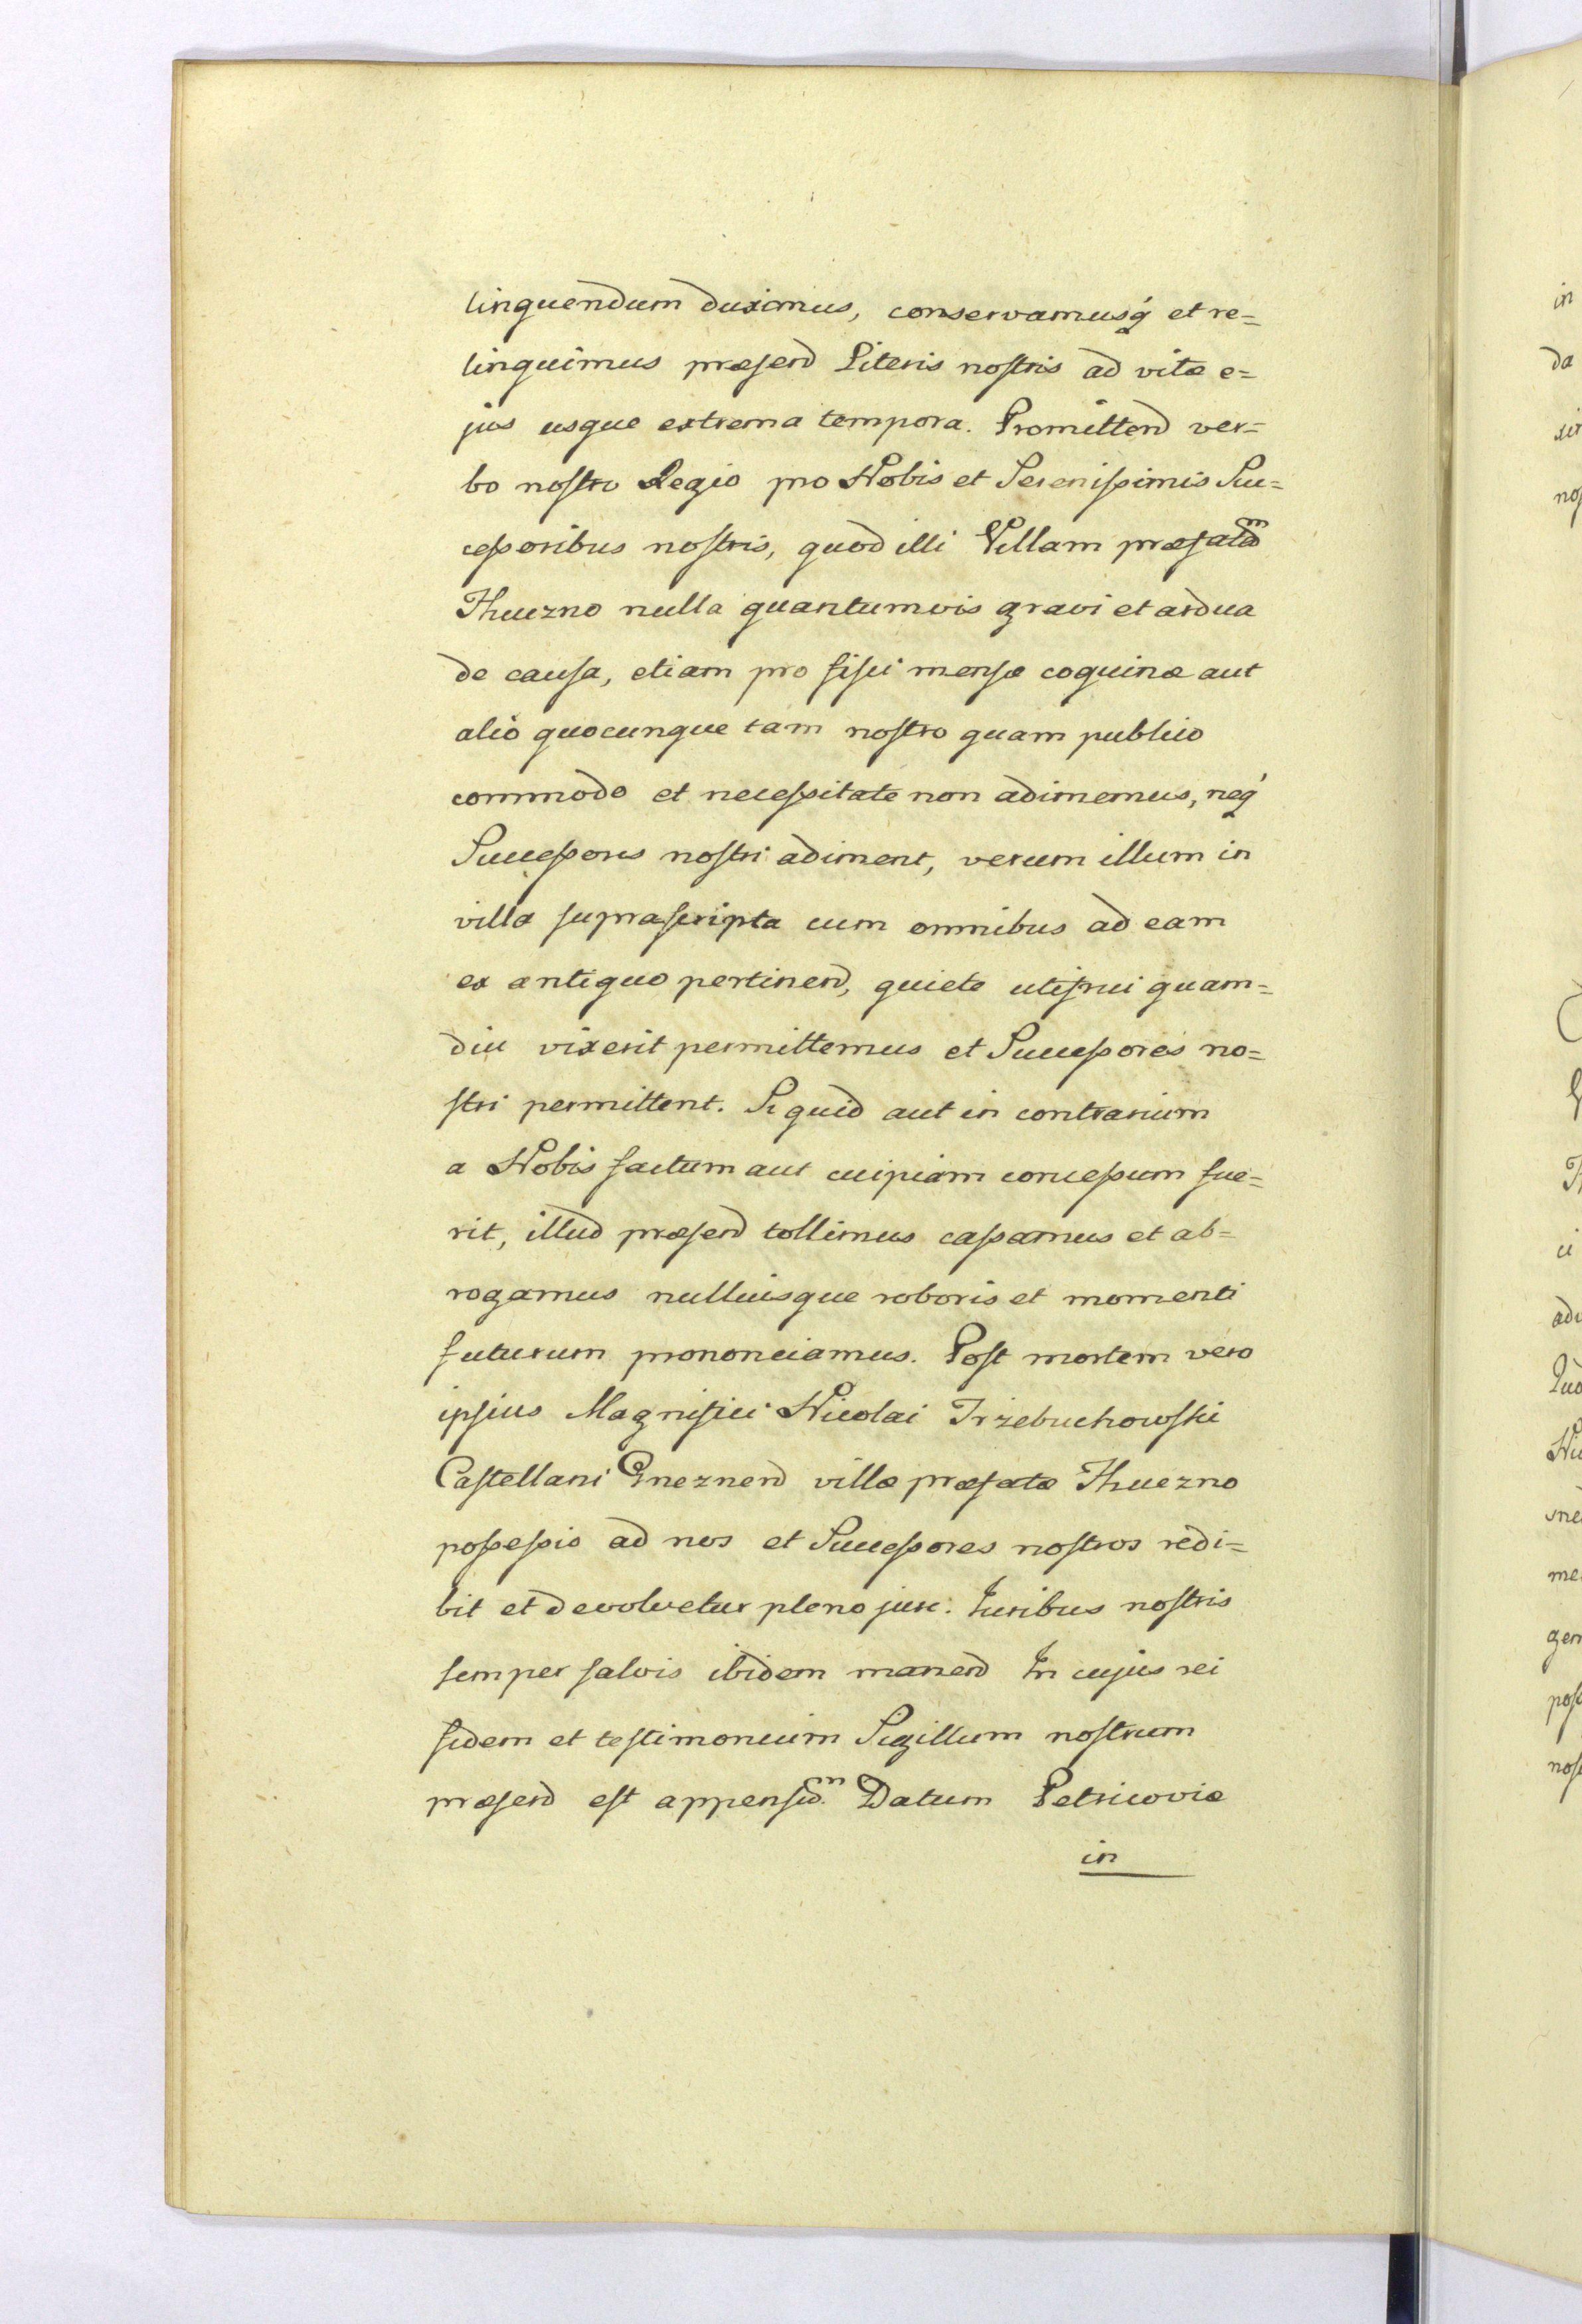 linquendum duximus, conservamusq́ et re=
linquimus præsend Literis nostris ad vitæ e=
jus usque extrema tempora. Promittend ver=
bo nostro Regio pro Nobis et Serenissimis Suc=
cessoribus nostris, quod illi Villam præfatã
Thuezno nulla quantumvis gravi et ardua
de causa, etiam pro fisci mensæ coquinæ aut
alio quocunque tam nostro quam publico
commodo et necessitate non adimemus, neq́
Successores nostri adiment, verum illum in
villa suprascripta cum omnibus ad eam
ex antiquo pertinend, quiete utifrui quam=
diu vixerit permittemus et Successores no=
stri permittent. Si quid aut in contrarium
a Nobis factum aut cuipiam concessum fue=
rit, illud præsend tollimus cassamus et ab=
rogamus nulliusque roboris et momenti
futurum prononciamus. Post mortem vero
ipsius Magnifici Nicolai Trzebuchowski
Castellani Gneznend villæ præfatæ Thuezno
possessio ad nos et Successores nostros redi=
bit et devolvetur pleno jure. Juribus nostris
semper salvis ibidem manend In cujus rei
fidem et testimonium Sigillum nostrum
præsend est appensum. Datum Petricoviæ
in
in
da
nos
ci
Nic
med
gen
pos
nos